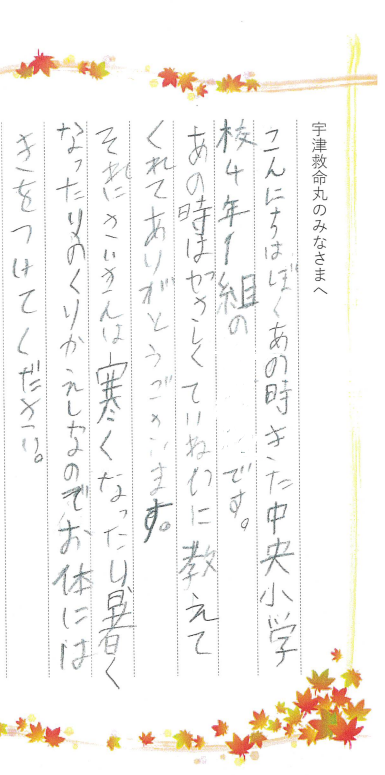 宇津救命丸のみなさまへ
こんにちはぼくあの時きた中央小学
校4年1組の です。
あの時はやさしくていねいに教えて
くれてありがとうございます。
それにさいきんは寒くなったり暑く
なったりのくりかえしなのでお体には
きをつけてください。